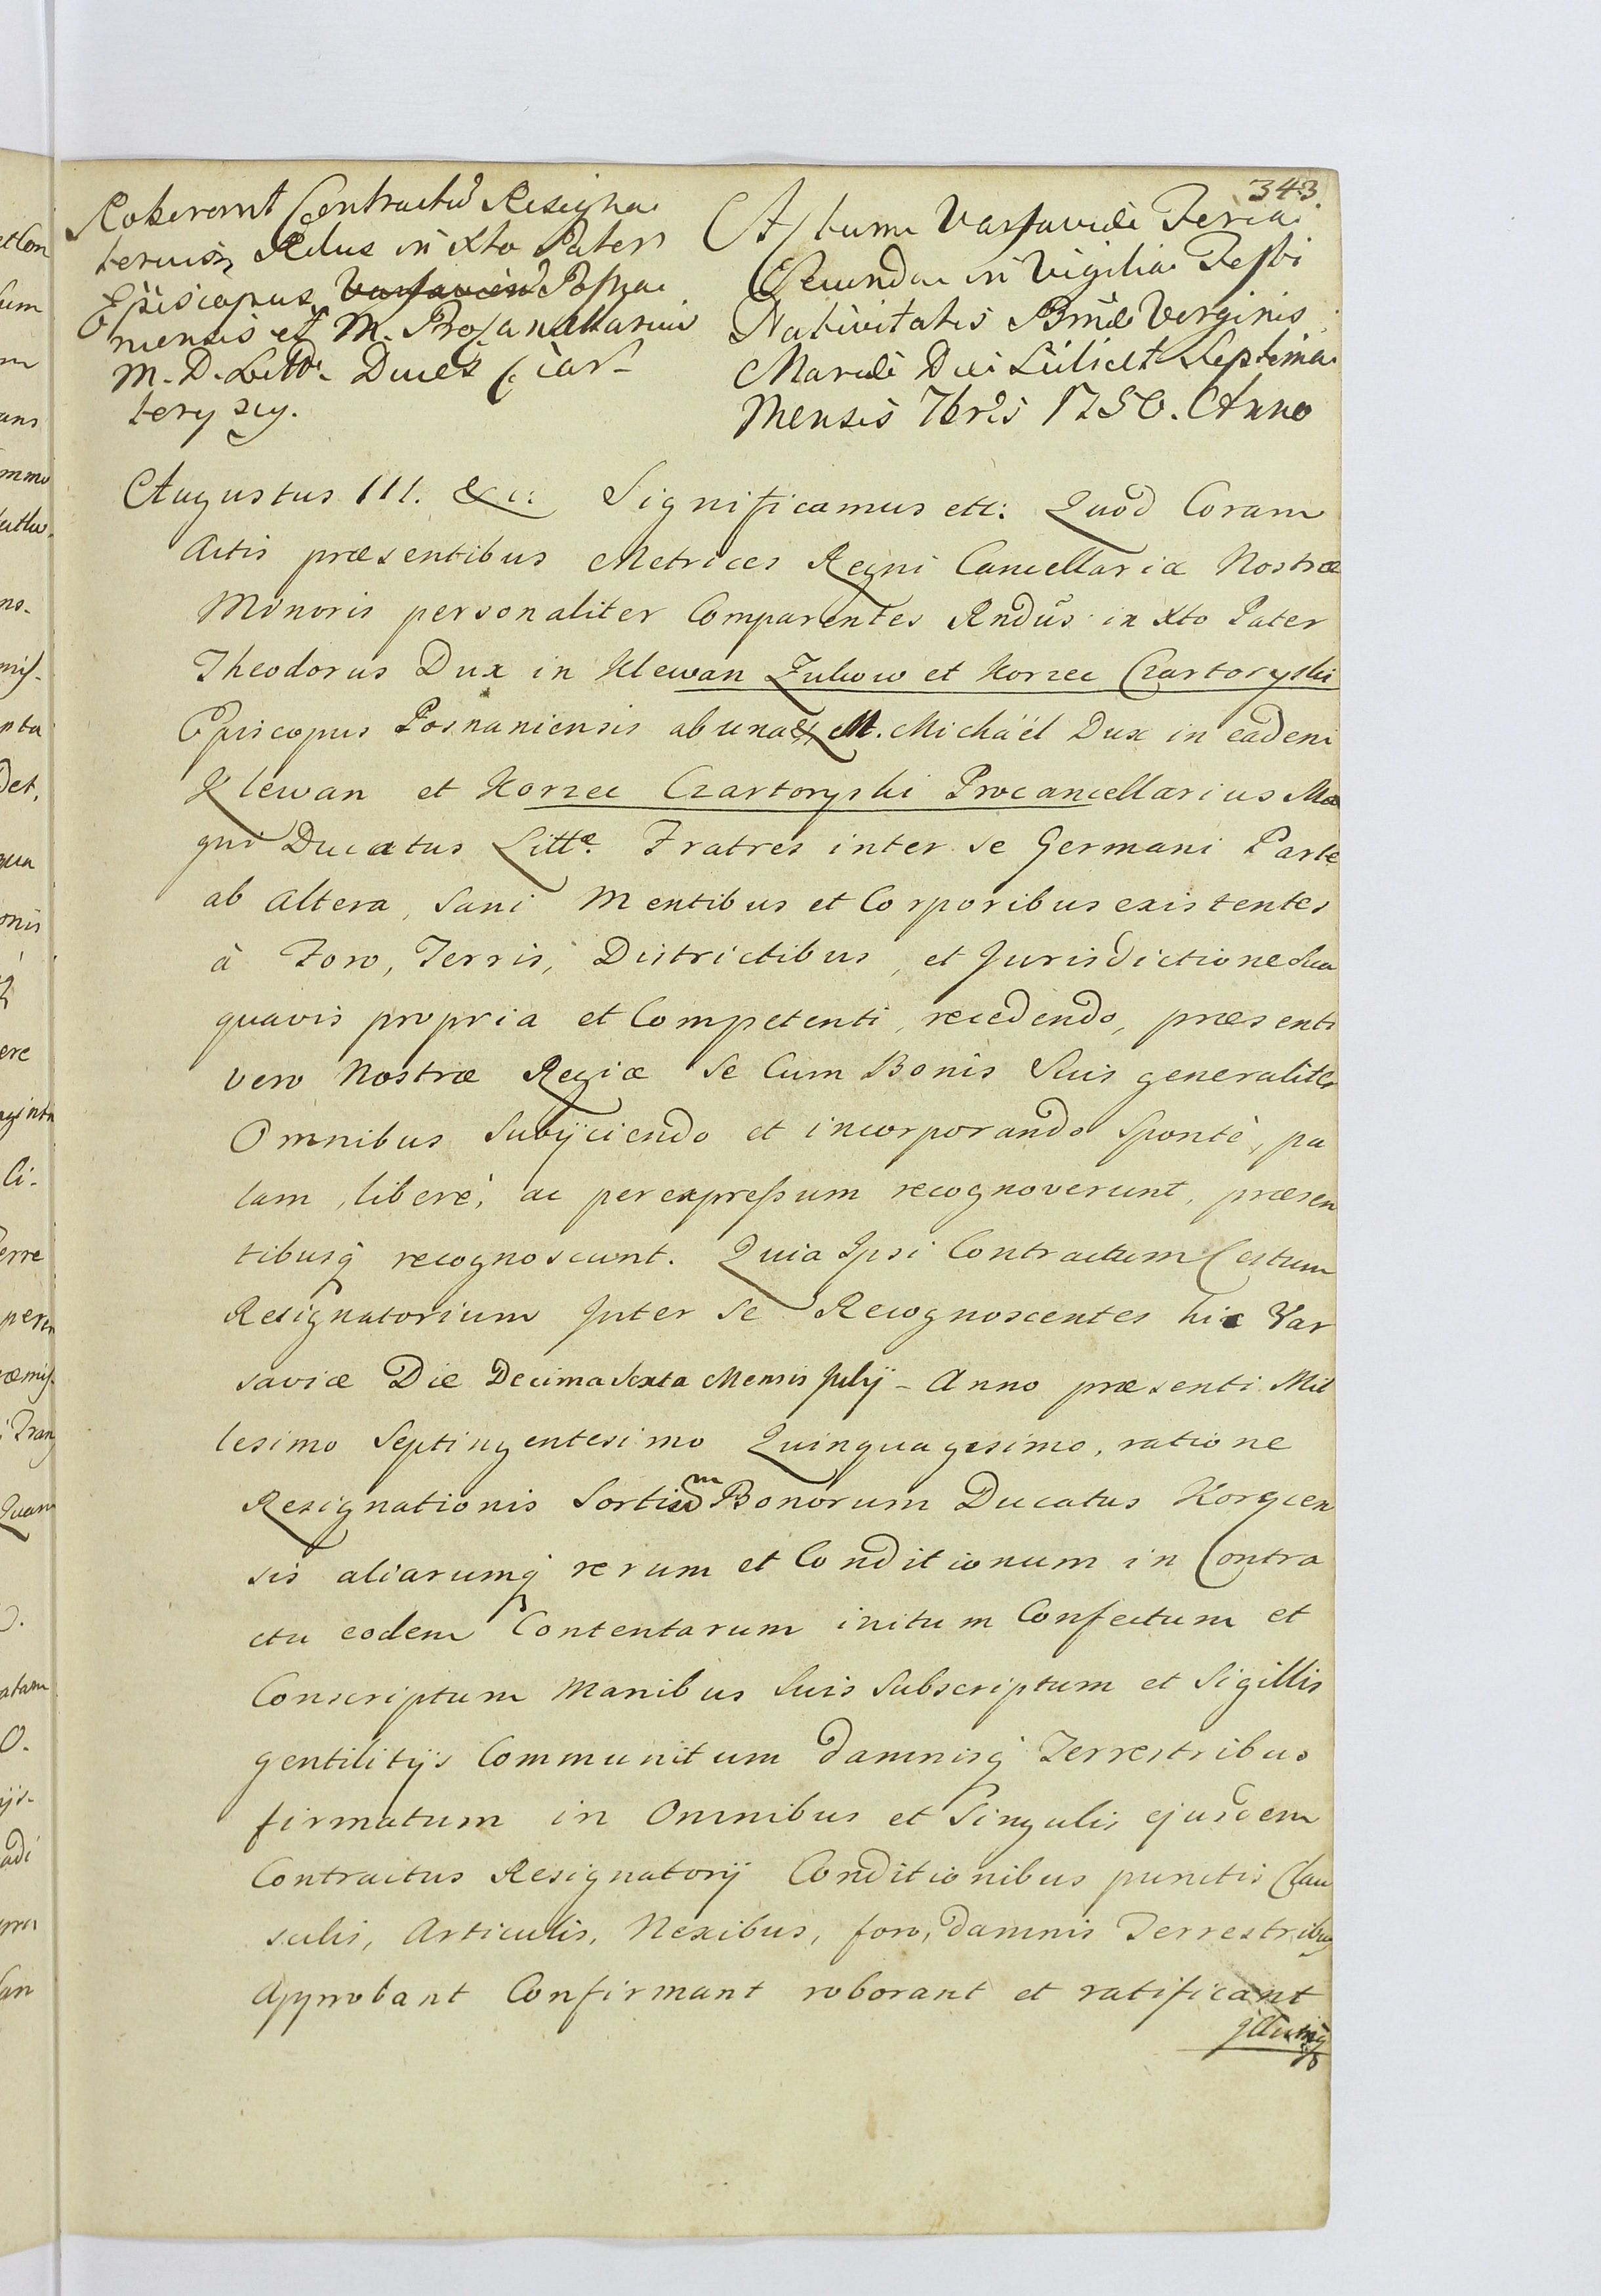 343.
Roborant Contractu Resigna
torium Rdus in Xto Pater
Episcopus Varsavien Posna
niensis et M. Procancellarius
M. D. Litt. Duces Czar-
toryscy.
Actum Varsaviæ Feria
Secunda in Vigilia Festi
Nativitatis Bmæ Virginis
Mariæ Die Scilicet Septima
Mensis 7bris 1750. Anno
Augustus III. &c: Significamus etc: Quod Coram
Actis præsentibus Metrices Regni Cancellariæ Nostræ
Minoris personaliter Comparentes Rndūs in Xto Pater
Theodorus Dux in Klewan Zukow et Korzec Czartoryski
Episcopus Posnaniensis ab una & M. Michaël Dux in eadem
Klewan et Korzec Czartoryski Procancellarius Ma
gni Ducatus Littæ Fratres inter se Germani Parte
ab altera, Sani Mentibus et Corporibus existentes
à Foro, Terris, Districtibus, et Jurisdictione Sua
quavis propria et Competenti, recedendo, præsenti
vero Nostræ Regiæ Se Cum Bonis Suis generaliter
Omnibus Subÿciendo et incorporando Spontè, pa
lam, liberè, ac per expressum recognoverunt, præsen
tibusq recognoscunt. Quia Ipsi Contractum Certum
Resignatorium Inter Se Recognoscentes hic Var
saviæ Die Decima Sexta Mensis Julÿ - Anno præsenti Mil
lesimo Septingentesimo Quinquagesimo, ratione
Resignationis Sortium Bonorum Ducatus Korecen
sis aliarumq rerum et Conditionum in Contra
ctu eodem Contentarum initum Confectum et
Conscriptum Manibus Suis Subscriptum et Sigillis
gentilitÿs Communitum damnisq Terrestribus
firmatum in Omnibus et Singulis ejusdem
Contractus Resignatorÿ Conditionibus punctis Clau
sulis, Articulis, Nexibus, foro, damnis Terrestribus
Approbant Confirmant roborant et ratificant
illumq